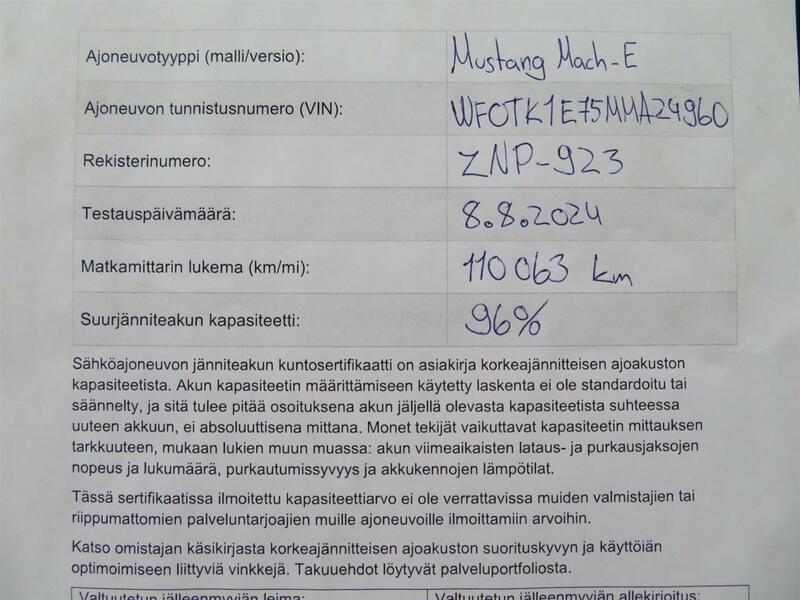 Ajoneuvotyyppi (malli/versio): Mustang Mach-E
Ajoneuvon tunnistusnumero (VIN): WF0TK1E75MMA24960
Rekisterinumero: ZNP-923
Testauspäivämäärä: 8.8.2024
Matkamittarin lukema (km/mi): 110 063 km
Suurjänniteakun kapasiteetti: 96%
Sähköajoneuvon jänniteakun kuntosertifikaatti on asiakirja korkeajännitteisen ajoakuston
kapasiteetista. Akun kapasiteetin määrittämiseen käytetty laskenta ei ole standardoitu tai
säännelty, ja sitä tulee pitää osoituksena akun jäljellä olevasta kapasiteetista suhteessa
uuteen akkuun, ei absoluuttisena mittana. Monet tekijät vaikuttavat kapasiteetin mittauksen
tarkkuuteen, mukaan lukien muun muassa: akun viimeaikaisten lataus- ja purkausjaksojen
nopeus ja lukumäärä, purkautumissyvyys ja akkukennojen lämpötilat.
Tässä sertifikaatissa ilmoitettu kapasiteettiarvo ei ole verrattavissa muiden valmistajien tai
riippumattomien palveluntarjoajien muille ajoneuvoille ilmoittamiin arvoihin.
Katso omistajan käsikirjasta korkeajännitteisen ajoakuston suorituskyvyn ja käyttöiän
optimoimiseen liittyviä vinkkejä. Takuuehdot löytyvät palveluportfoliosta.
Valtuutetun jälleenmyyjän leima: Valtuutetun jälleenmyyjän allekirjoitus: